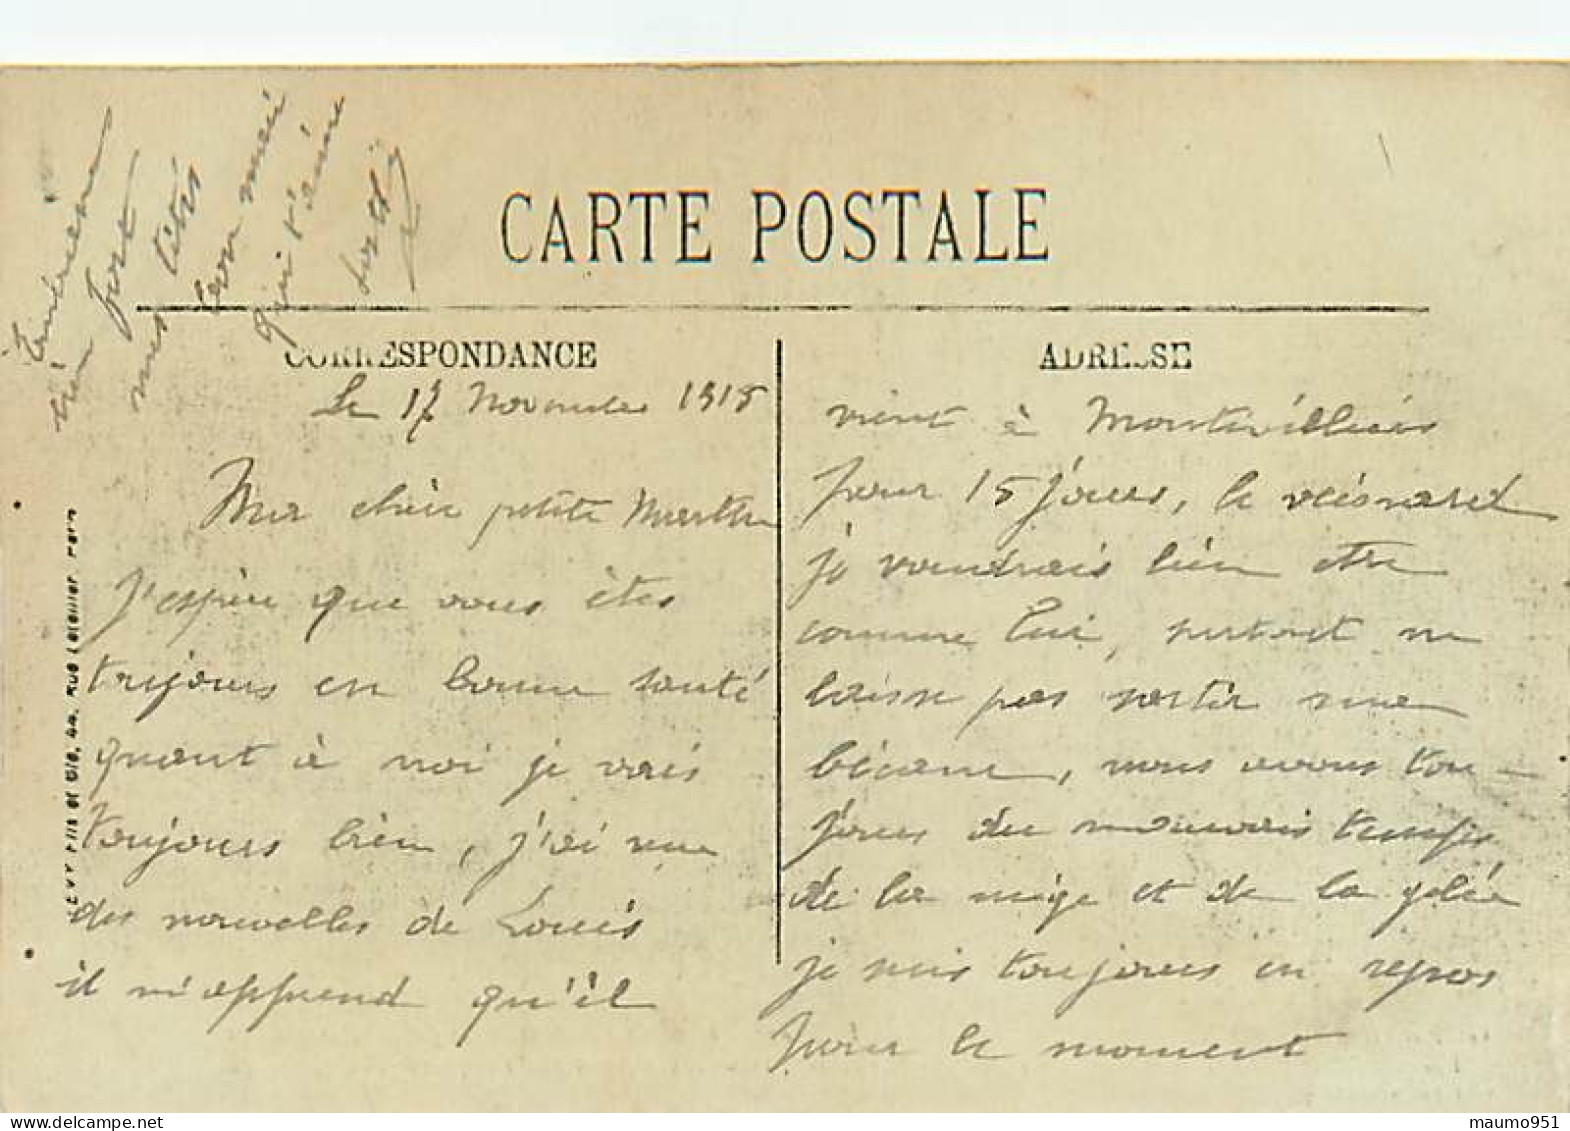 CARTE POSTALE
CORRESPONDANCE
Le 17 Novembre 1915
Ma chère petite Marthe
J'espère que vous êtes
toujours en bonne santé
quant à moi je vais
toujours bien, j'ai eue
des nouvelles de Louis
il m'apprend qu'il
ADRESSE
vient à Montivilliers
pour 15 jours, le veinard
je voudrais bien etre
comme lui, surtout ne
laisse pas sortir ma
bécane, nous avons tou-
jours du mauvais temps
de la neige et de la gelée
je suis toujours en repos
pour le moment
bien fort
mes
ton
qui t'aime
LEVY FILS et Cie, 44, Rue Letellier, Paris
maumo951